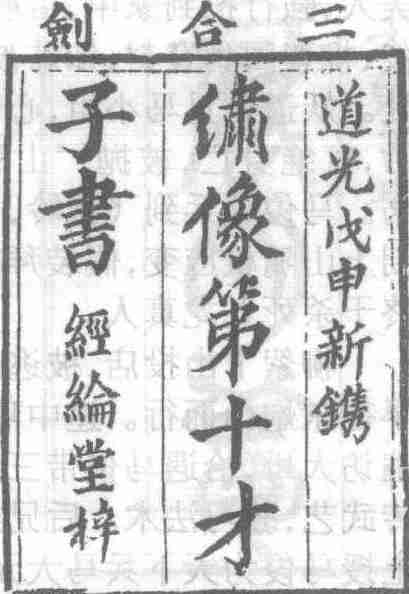 三合劍
道光戊申新鐫
繡像第十才
子書 經綸堂梓